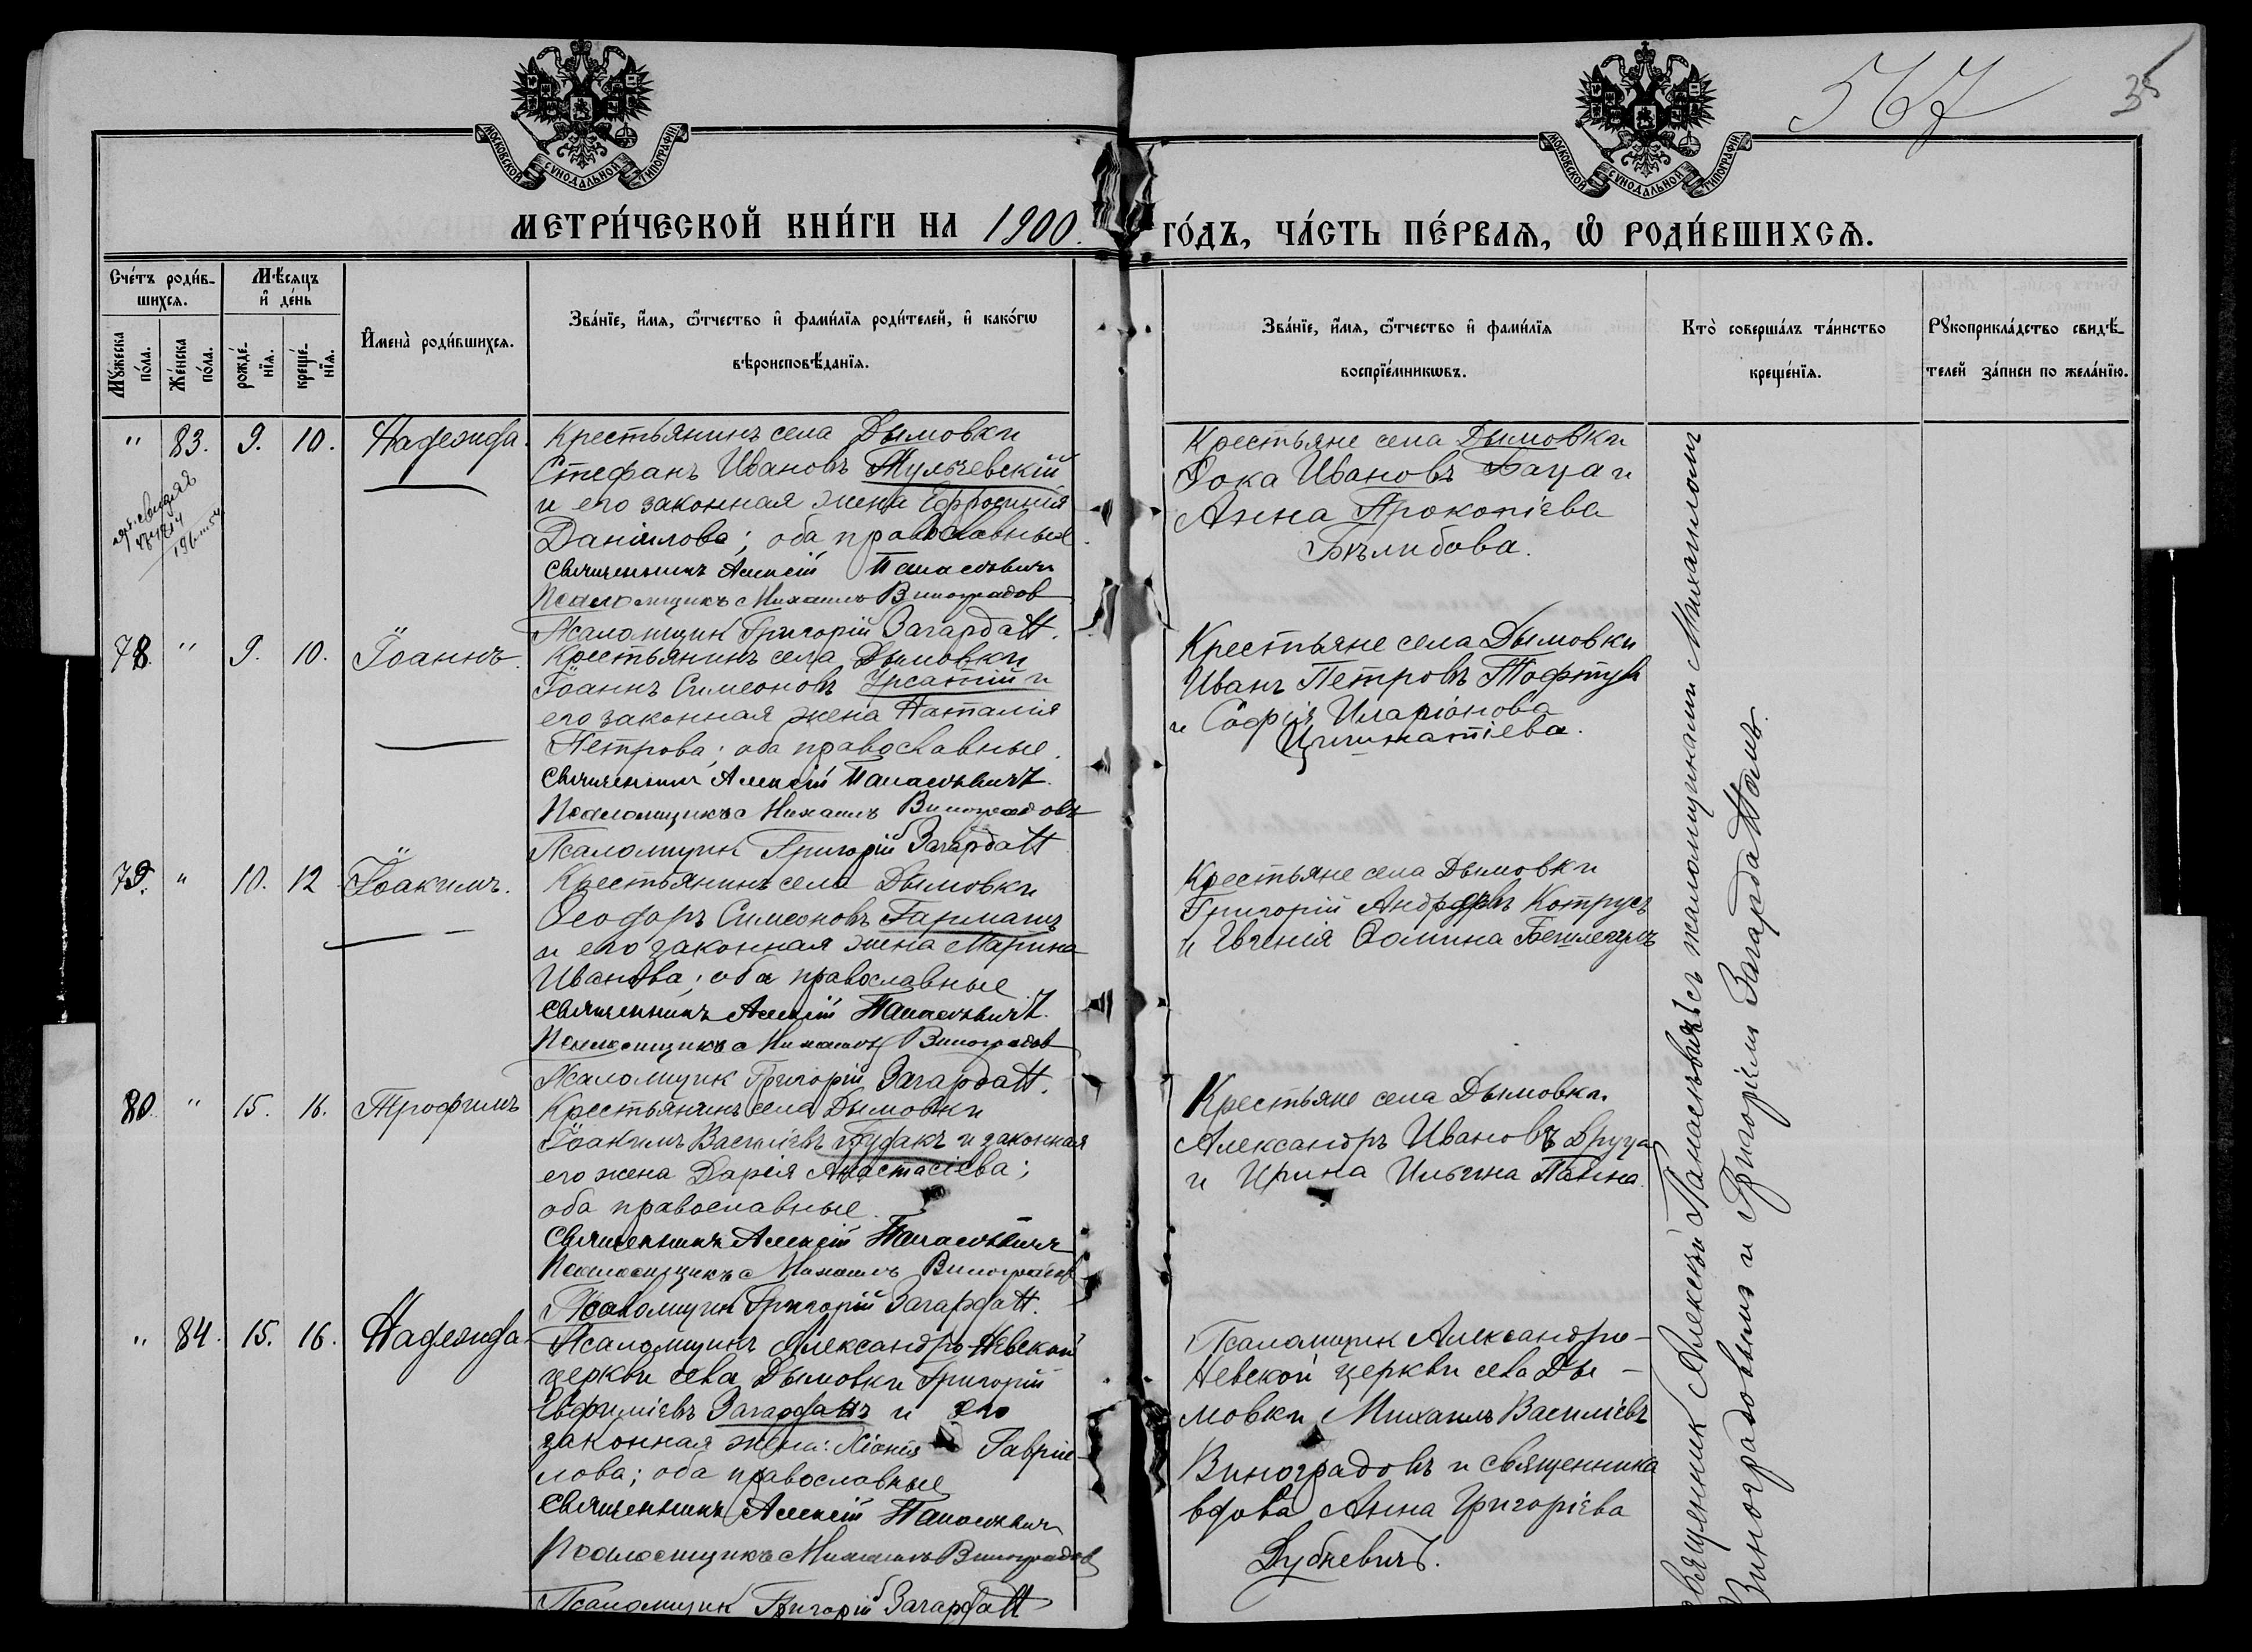 567
35
МОСКОВСКОЙ СѴНОДАЛЬНОЙ ТИПОГРАФІИ
МОСКОВСКОЙ СѴНОДАЛЬНОЙ ТИПОГРАФІИ
МЕТРИ́ЧЕСКОЙ КНИ́ГИ НА 1900.
ГО́ДЪ, ЧА́СТЬ ПЕ́РВАѦ, Ѡ РОДИ́ВШИХСѦ.
Сче́тъ роди́в-
шихсѧ.
Мꙋ́жеска по́ла.
Же́нска по́ла.
Мѣ́сѧцъ
и҆ де́нь
рожде́-
нїѧ.
креще́-
нїѧ.
И҆мена̀ роди́вшихсѧ.
Зва́нїе, и҆́мѧ, ѻ҆́тчество и҆ фами́лїѧ роди́телей, и҆ како́гѡ
вѣроисповѣ́данїѧ.
Зва́нїе, и҆́мѧ, ѻ҆́тчество и҆ фами́лїѧ
воспрїе́мникѡвъ.
Кто̀ соверша́лъ та́инство
креще́нїѧ.
Рꙋкоприкла́дство свидѣ́-
телей за́писи по жела́нїю.
" 83. 9. 10. Надежда.
Крестьянинъ села Дымовки
Стефанъ Ивановъ Мульчевскій
и его законная жена Ефросинія
Даніилова; оба православные
Священникъ Алексій Панасевичъ
Псаломщикъ Михаилъ Виноградов
Псаломщик Григорій Загардан.
Крестьяне села Дымовки
Фока Ивановъ Баца и
Анна Прокопіева
78. " 9. 10. Іоаннъ.
Крестьянинъ села Дымовки
Іоаннъ Симеоновъ Урсатій и
его законная жена Наталія
Петрова; оба православные.
Священникъ Алексій Панасевичъ.
Псаломщикъ Михаилъ Виноградовъ
Псаломщик Григорій Загардан
Крестьяне села Дымовки
Иванъ Петровъ Тофтул
и Софія Иларіонова
79. " 10. 12 Іоакимъ.
Крестьянинъ села Дымовки
Ѳеодоръ Симеоновъ Гарманъ
и его законная жена Марина
Иванова; оба православные
Священникъ Алексій Панасевичъ.
Псаломщикъ Михаилъ Виноградов
Псаломщик Григорій Загардан.
Крестьяне села Дымовки
Григорій Андреевъ Котрусъ
и Евгенія Ѳомина
80. " 15. 16. Трофимъ
Крестьянинъ села Дымовки
Іоакимъ Василіевъ и законная
его жена Дарія Анастасіева;
оба православные.
Священникъ Алексій Панасевичъ
Псаломщикъ Михаилъ Виноградов
Псаломщик Григорій Загардан.
Крестьяне села Дымовки
Александръ Ивановъ Друца
и Ирина Ильина Панна.
" 84. 15. 16. Надежда.
Псаломщикъ Александро-Невской
церкви села Дымовки Григорій
Евфиміевъ Загарданъ и его
законная жена: Гавріи-
лова; оба православные
Священникъ Алексій Панасевичъ
Псаломщикъ Михаилъ Виноградов
Псаломщик Григорій Загардан
Псаломщик Александро-
Невской церкви села Ды-
мовки Михаилъ Василіевъ
Виноградовъ и священника
вдова Анна Григоріева
Дубневичъ.
Священник Алексій Панасевичъ съ псаломщиками Михаиломъ
Виноградовымъ и Григоріемъ Загарданомъ.